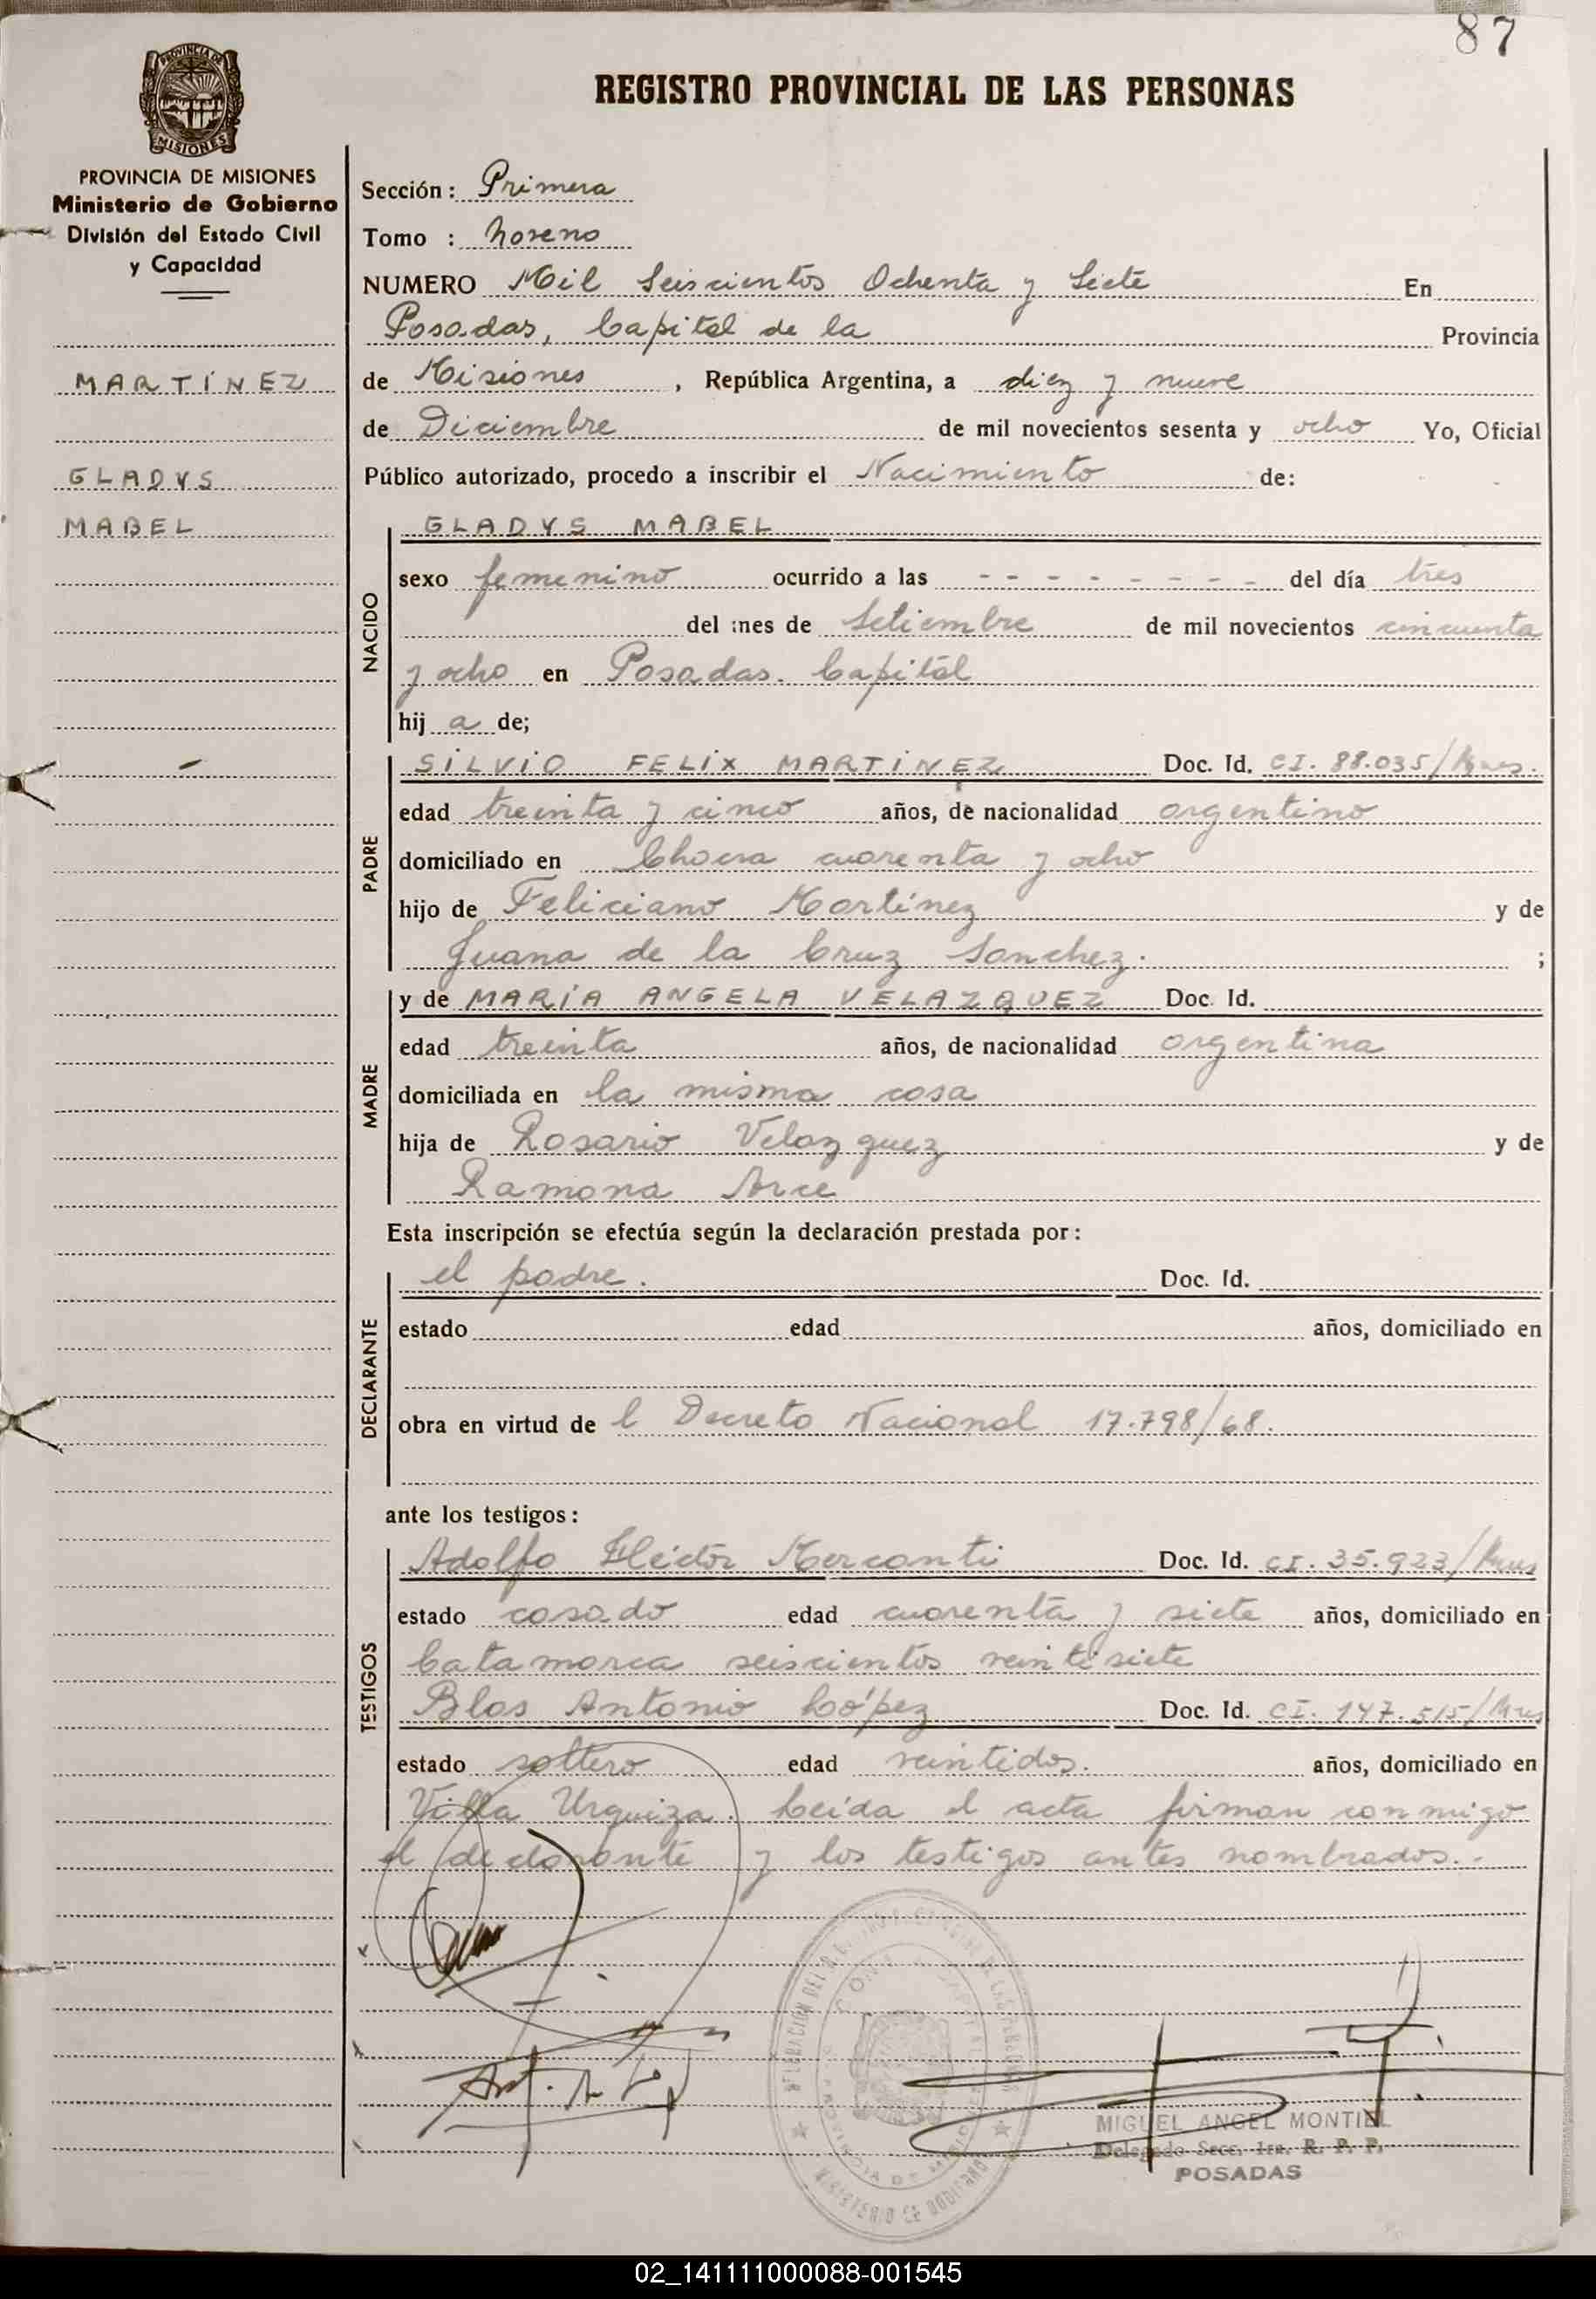 87
REGISTRO PROVINCIAL DE LAS PERSONAS
PROVINCIA DE MISIONES
Ministerio de Gobierno
División del Estado Civil
y Capacidad
MARTÍNEZ
GLADYS
MABEL
Sección: Primera
Tomo : Noveno
NUMERO Mil Seiscientos Ochenta y Siete En
Posadas, Capital de la Provincia
de Misiones, República Argentina, a diez y nueve
de Diciembre de mil novecientos sesenta y ocho Yo, Oficial
Público autorizado, procedo a inscribir el Nacimiento de:
NACIDO
GLADYS MABEL
sexo femenino ocurrido a las - - - - - - - - del día tres
del mes de Setiembre de mil novecientos cincuenta
y ocho en Posadas. Capital
hij a de;
PADRE
SILVIO FELIX MARTÍNEZ Doc. Id. CI. 88.035/Mnes.
edad treinta y cinco años, de nacionalidad argentino
domiciliado en Chacra cuarenta y ocho
hijo de Feliciano Martínez y de
Juana de la Cruz Sanchez. ;
MADRE
y de MARÍA ANGELA VELAZQUEZ Doc. Id.
edad treinta años, de nacionalidad argentina
domiciliada en la misma casa
hija de Rosario Velazquez y de
Ramona Arce
Esta inscripción se efectúa según la declaración prestada por:
DECLARANTE
el padre. Doc. Id.
estado edad años, domiciliado en
obra en virtud de l Decreto Nacional 17.798/68.
ante los testigos:
TESTIGOS
Adolfo Héctor Mercanti Doc. Id. CI. 35.923/Mnes
estado casado edad cuarenta y siete años, domiciliado en
Catamarca seiscientos veintisiete
Blas Antonio López Doc. Id. CI. 147.515/Mnes
estado soltero edad veintidos. años, domiciliado en
Villa Urquiza. Leída el acta firman conmigo
el declarante y los testigos antes nombrados.-
MIGUEL ANGEL MONTIEL
Delegado Secc. 1ra. R. P. P.
POSADAS
MINISTERIO DE GOBIERNO
02_141111000088-001545